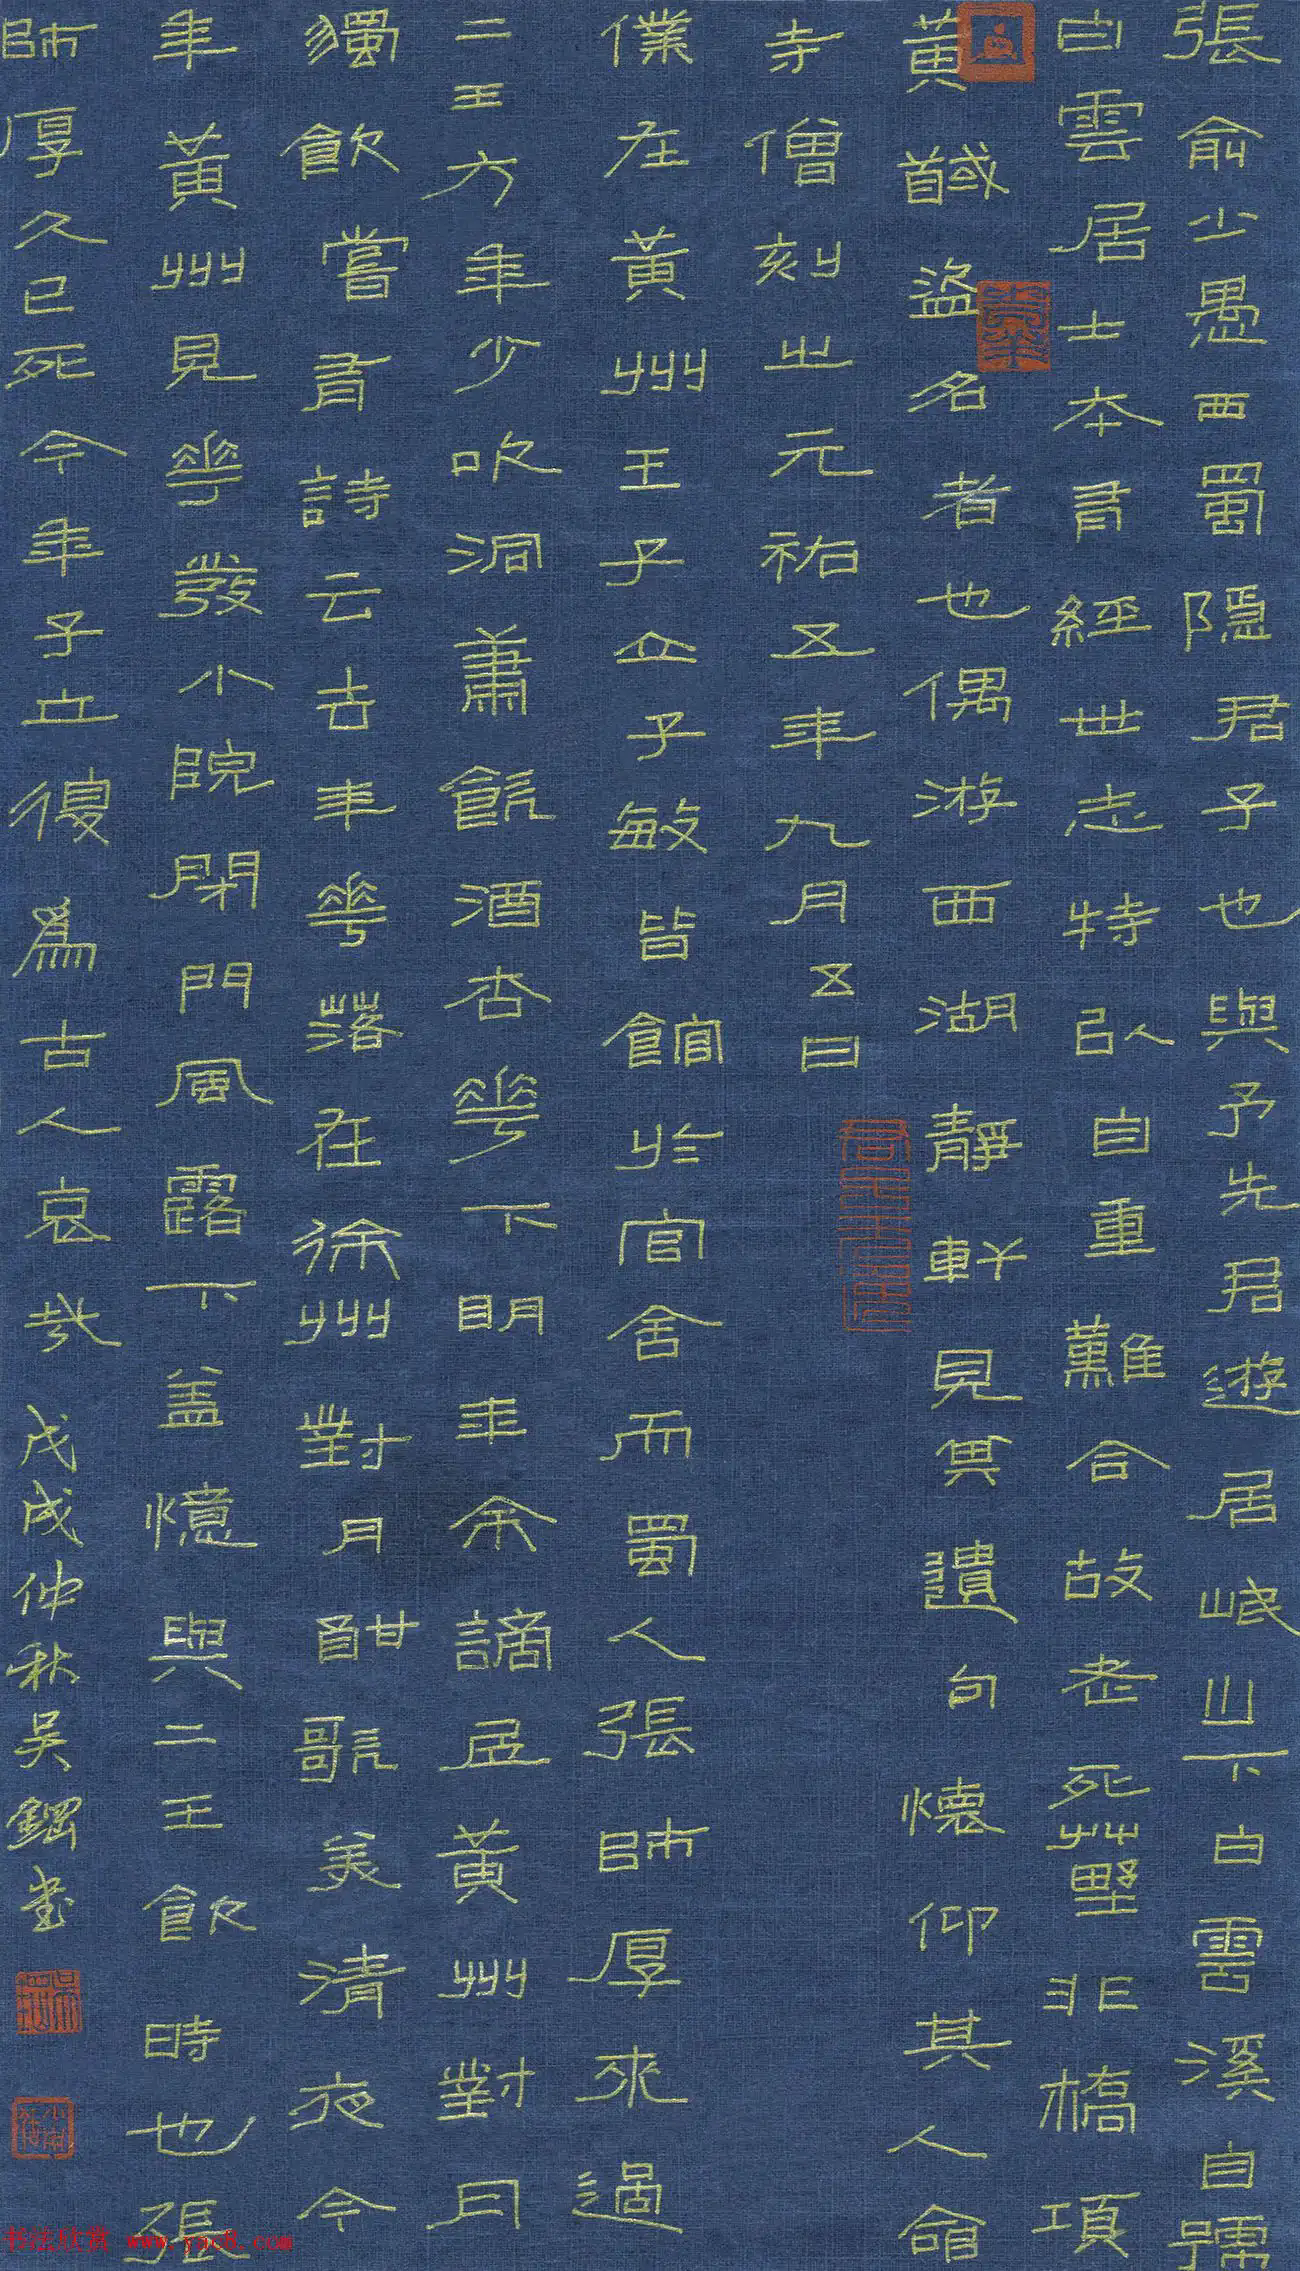 張俞少愚西蜀隱君子也與予先君遊居岷山下白雲溪自號
白雲居士本有經世志特以自重難合故老死草野非槁項
黃馘盜名者也偶游西湖靜軒見其遺句懷仰其人命
寺僧刻之元祐五年九月五日
僕在黃州王子立子敏皆館於官舍而蜀人張師厚來過
二王方年少吹洞簫飲酒杏花下明年余謫居黃州對月
獨飲嘗有詩云去年花落在徐州對月酣歌美清夜今
年黃州見花發小院閉門風露下蓋憶與二王飲時也張
師厚久已死今年子立復為古人哀哉 戊戌仲秋吳鋼書
书法欣赏 www.yac8.com